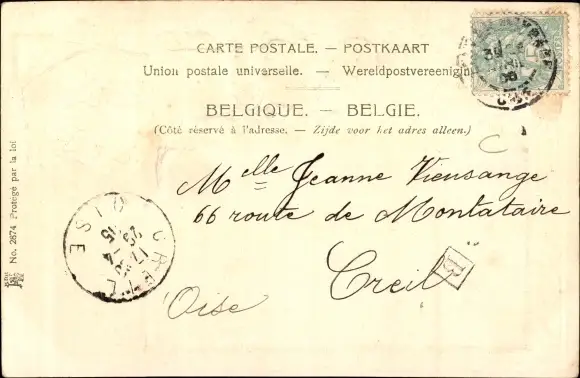 CARTE POSTALE. — POSTKAART
Union postale universelle. — Wereldpostvereeniging
BELGIQUE. — BELGIE.
(Côté réservé à l'adresse. — Zijde voor het adres alleen.)
Melle Jeanne Viensange
66 route de Montataire
Creil
Oise
CREIL
OISE
No. 2874 Protégé par la loi